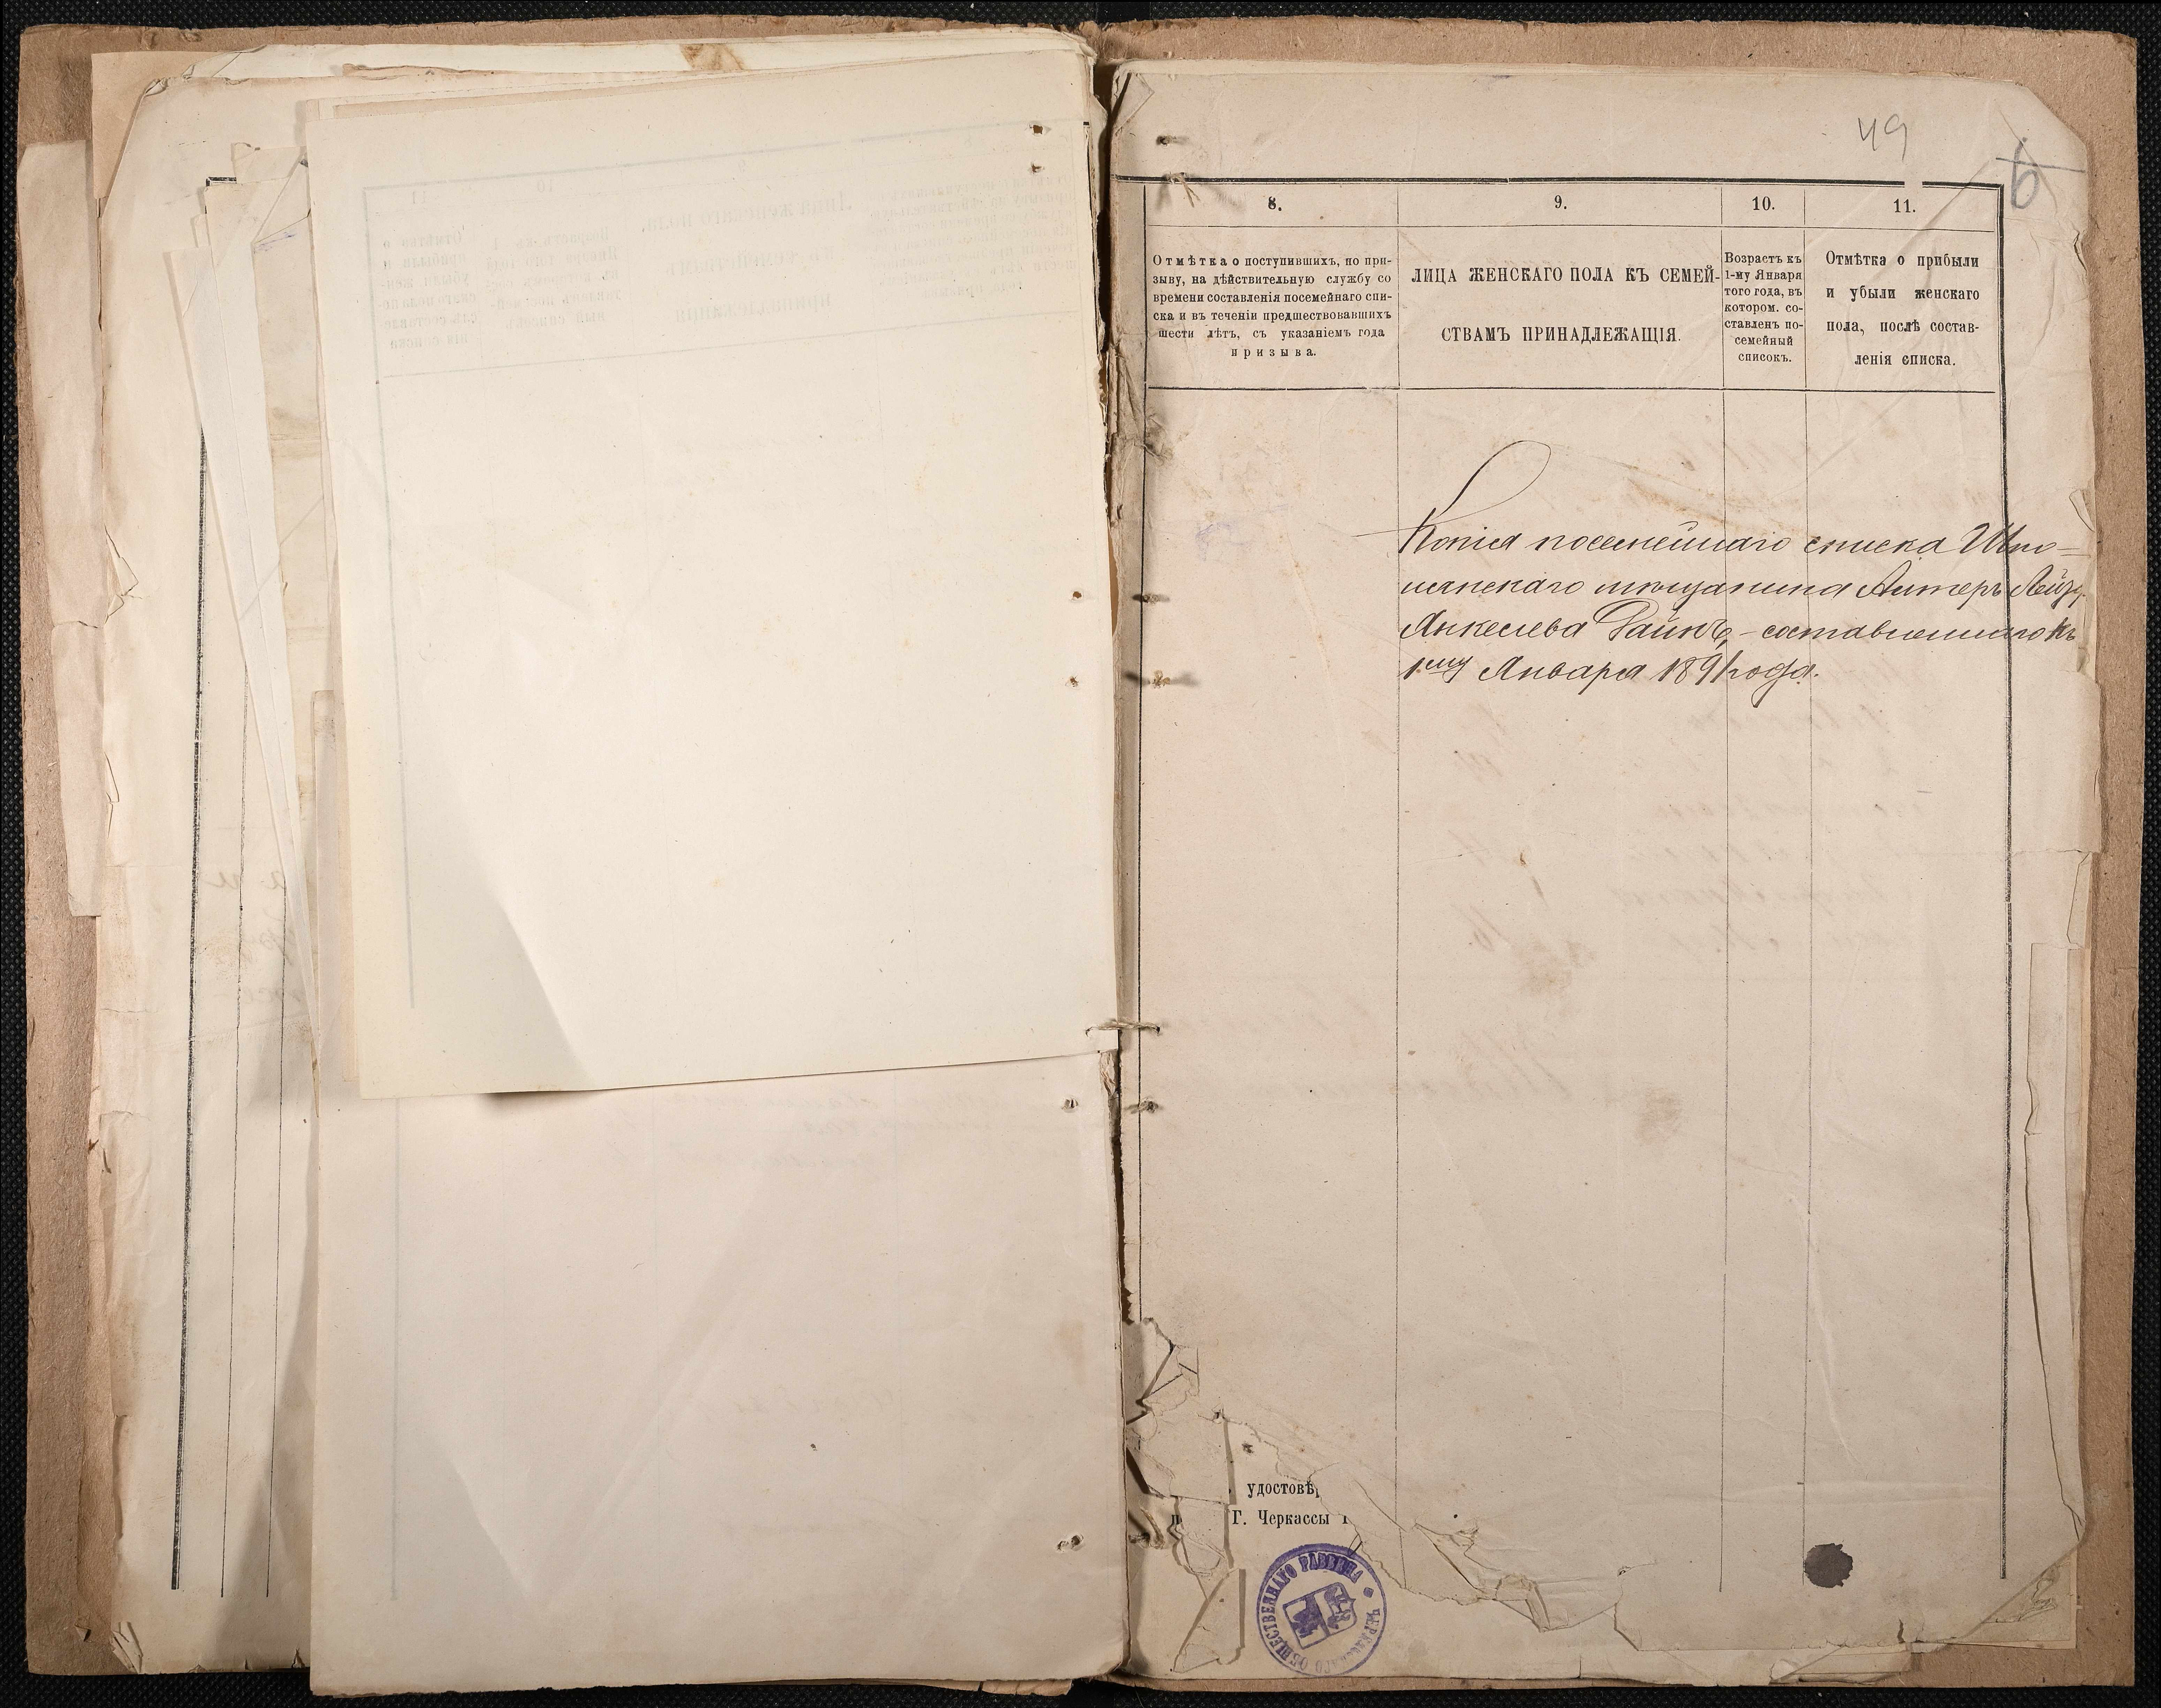 49
6
8.
9.
10.
11.
Отмѣтка о поступившихъ, по при-
зыву, на дѣйствительную службу со
времени составленія посемейнаго спи-
ска и въ теченіи предшествовавшихъ
шести лѣтъ, съ указаніемъ года
призыва.
ЛИЦА ЖЕНСКАГО ПОЛА КЪ СЕМЕЙ-
СТВАМЪ ПРИНАДЛЕЖАЩІЯ.
Возрастъ къ
1-му Января
того года, въ
котором. со-
ставленъ по-
семейный
списокъ.
Отмѣтка о прибыли
и убыли женскаго
пола, послѣ состав-
ленія списка.
Копія посемейнаго списка Шпо-
лянскаго мѣщанина Алтеръ Лейзу
Янкелева Райнъ, - составленнаго къ
1му Января 1891 года.
удостовѣ
Г. Черкассы
ЧЕРКАССКАГО ОБЩЕСТВЕННАГО РАВВИНА